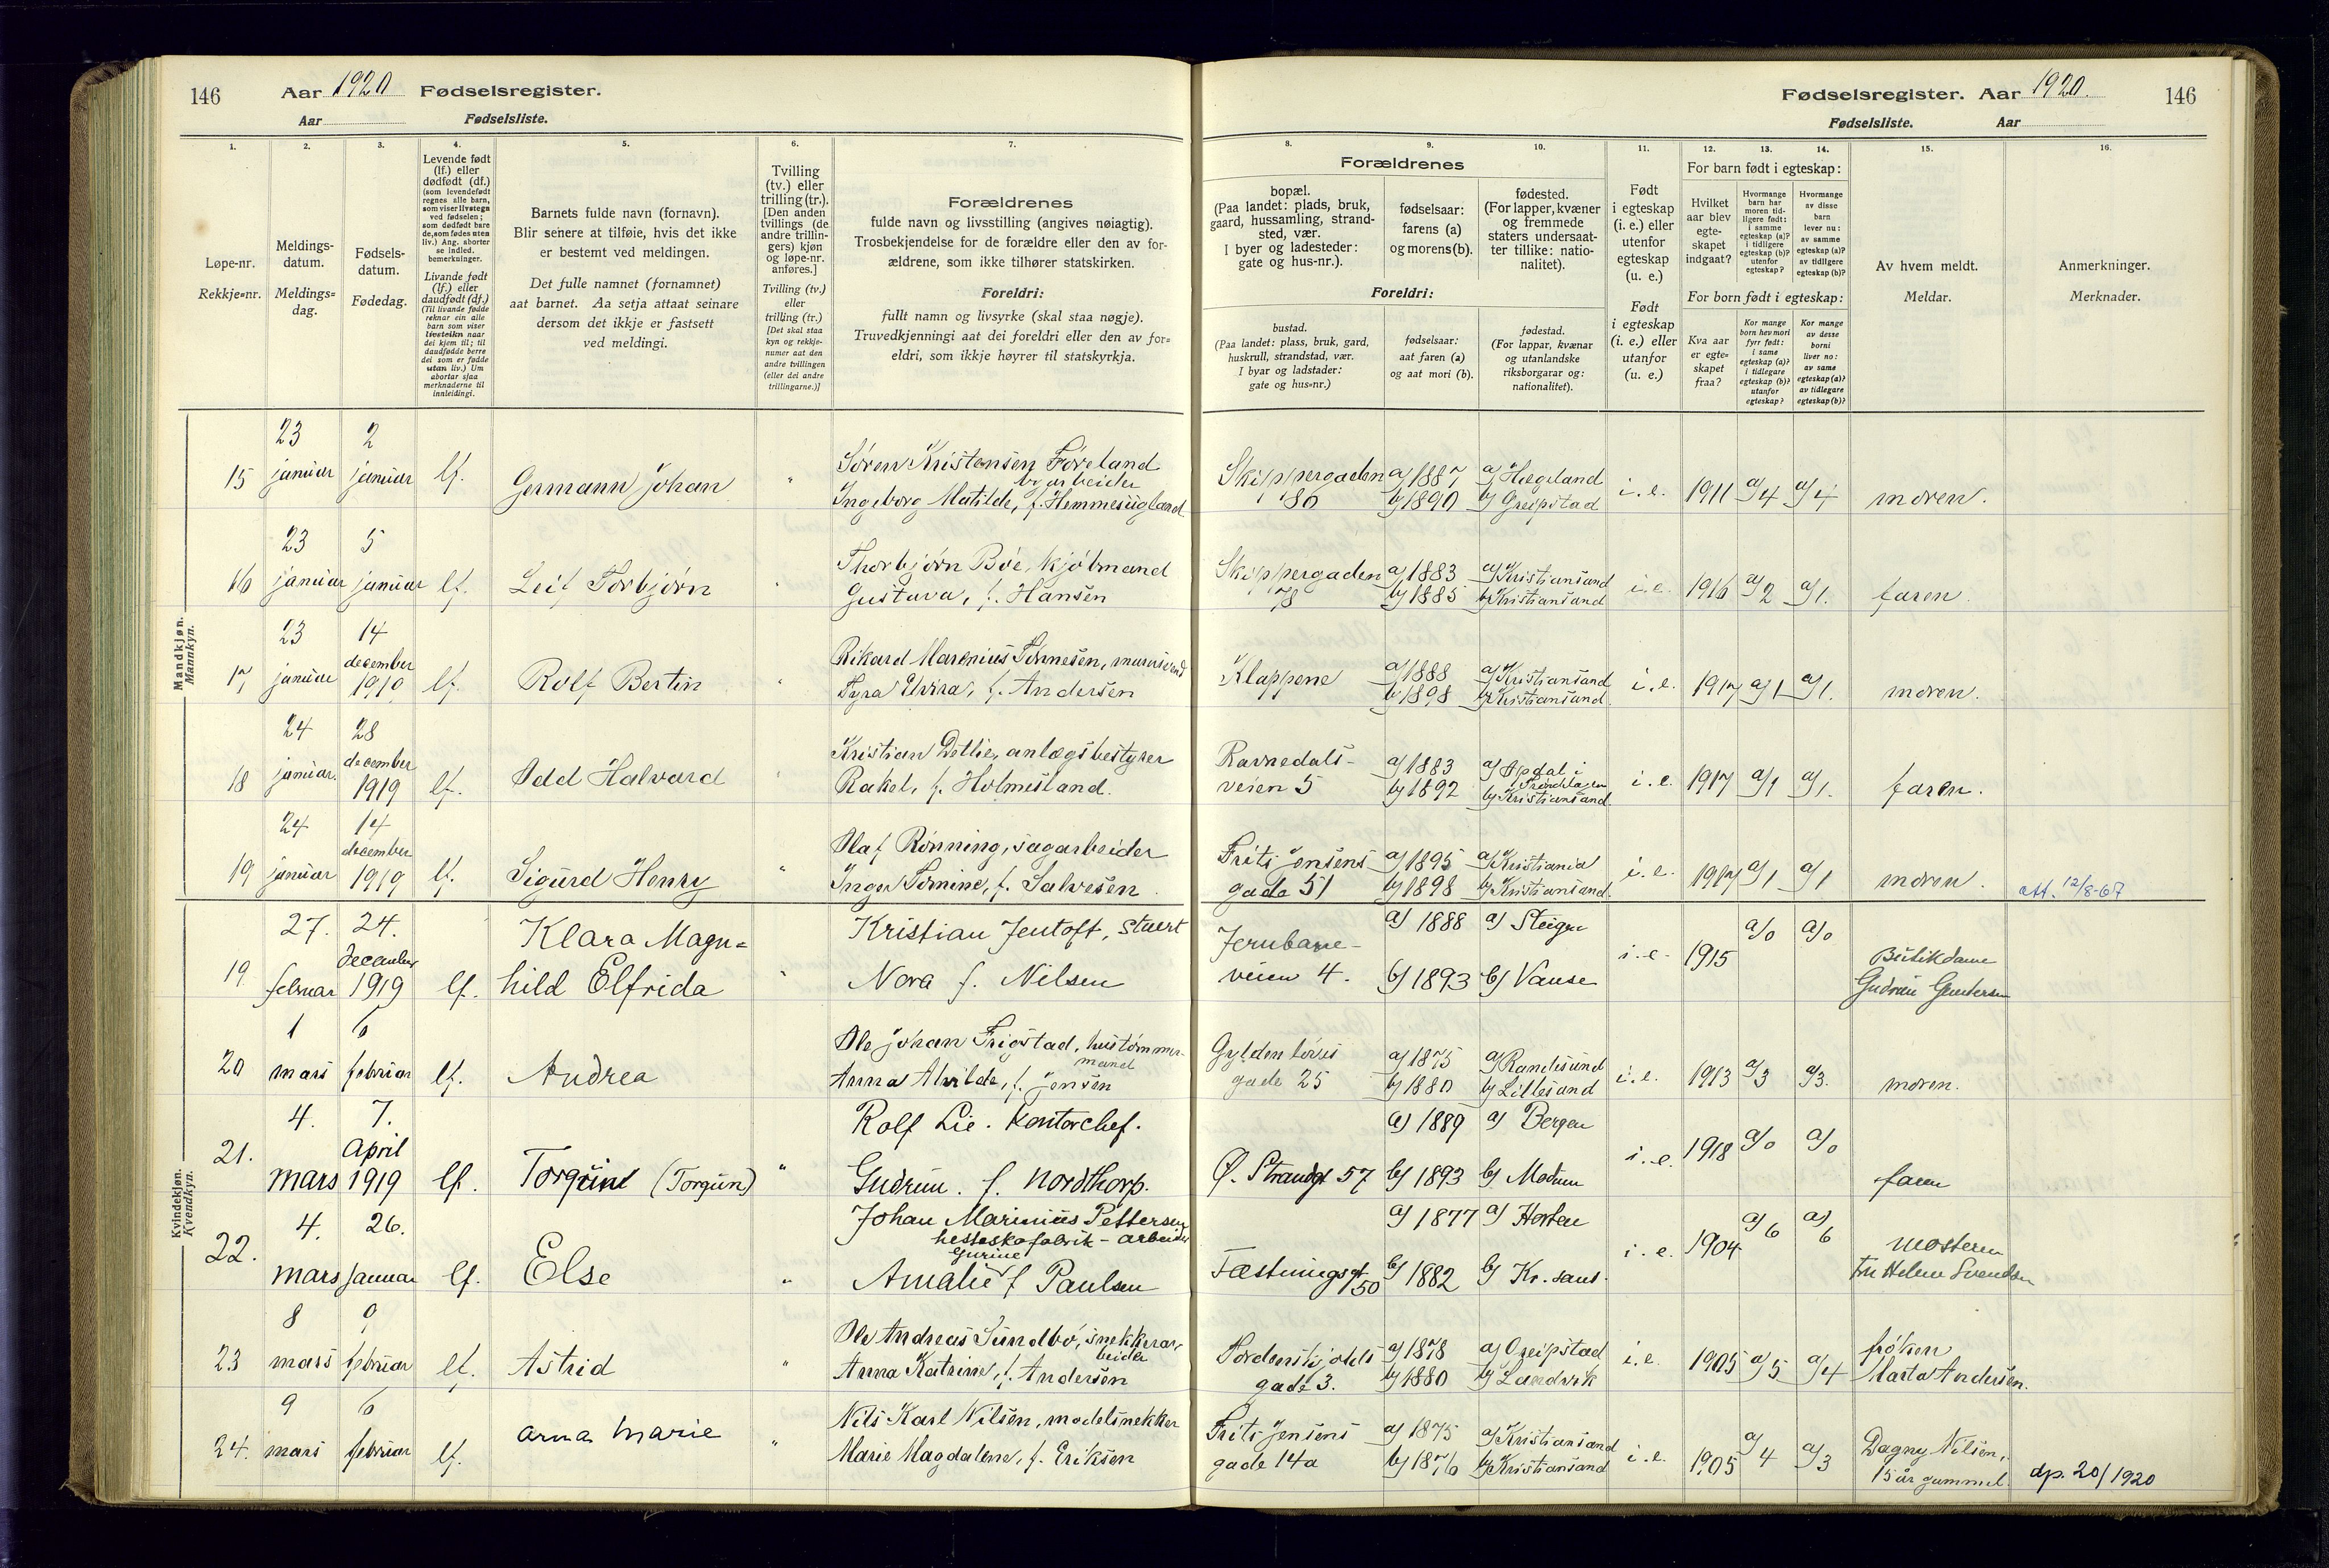 146 Aar 1920 Fødselsregister.
Aar Fødselsliste.
Fødselsregister. Aar 1920. 146
Fødselsliste. Aar
1. 2. 3. 4. 5. 6. 7. 8. 9. 10. 11. 12. 13. 14. 15. 16.
Løpe-nr.
Rekkje=nr.
Meldings-
datum.
Meldings=
dag.
Fødsels-
datum.
Fødedag.
Levende født
(lf.) eller
dødfødt (df.)
(som levendefødt
regnes alle barn,
som viser livstegn
ved fødselen;
som dødfødt bare
de, som fødes uten
liv.) Ang. aborter
se indled.
bemerkninger.
Livande født
(lf.) eller
daudfødt (df.)
(Til livande fødde
reknar ein alle
barn som viser
livsteikn naar
dei kjem til; til
daudfødde berre
dei som er fødde
utan liv.) Um
abortar sjaa
merknaderne til
innleidingi.
Barnets fulde navn (fornavn).
Blir senere at tilføie, hvis det ikke
er bestemt ved meldingen.
Det fulle namnet (fornamnet)
aat barnet. Aa setja attaat seinare
dersom det ikkje er fastsett
ved meldingi.
Tvilling
(tv.) eller
trilling (tr.).
[Den anden
tvillings (de
andre trillin-
gers) kjøn
og løpe-nr.
anføres.]
Tvilling (tv.)
eller
trilling (tr.)
[Det skal staa
kyn og rekkje-
numer aat den
andre tvillingen
(eller dei andre
trillingarne.)]
Forældrenes
fulde navn og livsstilling (angives nøiagtig).
Trosbekjendelse for de forældre eller den av for-
ældrene, som ikke tilhører statskirken.
Foreldri:
fullt namn og livsyrke (skal staa nøgje).
Truvedkjenningi aat dei foreldri eller den av for=
eldri, som ikkje høyrer til statskyrkja.
Forældrenes
bopæl.
(Paa landet: plads, bruk,
gaard, hussamling, strand-
sted, vær.
I byer og ladesteder:
gate og hus-nr.).
fødselsaar:
farens (a)
og morens (b).
fødested.
(For lapper, kvæner
og fremmede
staters undersaat-
ter tillike: natio-
nalitet).
Foreldri:
bustad.
(Paa landet: plass, bruk, gard,
huskrull, strandstad, vær.
I byar og ladstader:
gate og hus=nr.)
fødselsaar:
aat faren (a)
og aat mori (b).
fødestad.
(For lappar, kvænar
og utanlandske
riksborgarar og:
nationalitet).
Født
i egteskap
(i. e.) eller
utenfor
egteskap
(u. e.)
Født
i egteskap
(i. e.) eller
utanfor
(u. e.)
For barn født i egteskap:
Hvilket
aar blev
egte-
skapet
indgaat?
Hvormange
barn har
moren tid-
ligere født:
i samme
egteskap (a)?
i tidligere
egteskap (b)?
utenfor
egteskap?
Hvormange
av disse
barn
lever nu:
av samme
egteskap (a)?
av tidligere
egteskap (b)?
For born født i egteskap:
Kva aar
er egte=
skapet
fraa?
Kor mange
born hev mori
fyrr født:
i same
egteskap (a)?
i tidlegare
egteskap (b)?
utanfor
egteskap?
Kor mange
av desse
borni
liver no:
av same
egteskap (a)?
av tidlegare
egteskap (b)?
Av hvem meldt.
Meldar.
Anmerkninger.
Merknader.
Mandkjøn.
Mannkyn.
15 23 januar 2 januar lf. Germann Johan "
Søren Kristensen Føreland
byarbeider
Ingeborg Matilde, f. Hemmesugland
Skippergaden 86 a/ 1887 b/ 1890 a/ Hægeland b/ Greipstad i. e. 1911 a/4 a/4 moren.
16 23 januar 5 januar lf. Leif Torbjørn "
Thorbjørn Bøe, kjøbmand
Gustava, f. Hansen
Skippergaden 78 a/ 1883 b/ 1885 a/ Kristiansand b/ Kristiansand i. e. 1916 a/2 a/1. faren.
17 23 januar 14 december 1919 lf. Rolf Bertin "
Rikard Marenius Tønnesen, murersvend
Tyra Elvira, f. Andersen
Klappene a/ 1888 b/ 1898 a/ Kristiansand b/ Kristiansand i. e. 1917 a/1 a/1. moren.
18 24 januar. 28 december 1919 lf. Odd Halvard "
Kristian Detlie, anlægsbestyrer
Rakel, f. Holmesland.
Ravnedals-
veien 5 a/ 1883 b/ 1892 a/ Opdal i Trøndelagen b/ Kristiansand i. e. 1917 a/1 a/1. faren.
19 24 januar 14 december 1919 lf. Sigurd Henry "
Olaf Rønning, sagarbeider
Inger Tomine, f. Salvesen
Frits Jensens
gade 51 a/ 1895 b/ 1898 a/ Kristiania b/ Kristiansand i. e. 1917 a/1 a/1 moren. att. 12/8-67
Kvindekjøn.
Kvendkyn.
19. 27. februar 24. december 1919 lf. Klara Magn=
hild Elfrida "
Kristian Jentoft, stuert
Nora f. Nilsen
Jernbane-
veien 4. a/ 1888 b/ 1893 a/ Steigen b/ Vanse i. e. 1915 a/0 a/0 Butikdame
Gudrun Guntersen
20 1 mars 6 februar lf. Andrea
Ole Johan Frigstad, hustømmer-
mand
Anna Alvilde, f. Jensen
Gyldenløves
gade 25 a/ 1875 b/ 1880 a/ Randesund b/ Lillesand i. e. 1913 a/3 a/3. moren.
21. 4. mars 7. April 1919 lf. Torgunn (Torgun) "
Rolf Lie. Kontorchef.
Gudrun. f. Nordthorp.
Ø. Strandgt 57 a/ 1889 b/ 1893 a/ Bergen b/ Modum i. e. 1918 a/0 a/0 faren
22. 4. mars 26. Januar lf. Else "
Johan Marinius Pettersen
hesteskofabrik - arbeider
Gurine
Amalie f Paulsen
Fæstningsgt
150 a/ 1877 b/ 1882 a/ Horten b/ Kr. sand. i. e. 1904 a/6 a/6 mosteren
Fru Helene Svendsen
23 8 mars 9 februar lf. Astrid "
Ole Andreas Sundbø, snekkerar-
beider
Anna Katrine, f. Andersen
Tordenskjolds
gade 3. a/ 1878 b/ 1880 a/ Greipstad b/ Landvik i. e. 1905 a/5 a/4 frøken
Marta Andersen.
24. 9 mars 6 februar lf. Arna Marie "
Nils Karl Nilsen, modelsnekker
Marie Magdalene, f. Eriksen
Frits Jensens
gade 14a a/ 1875 b/ 1876 a/ Kristiansand b/ Kristiansand i. e. 1905 a/4 a/3 Dagny Nilsen,
15 år gammel. dp. 20/1920